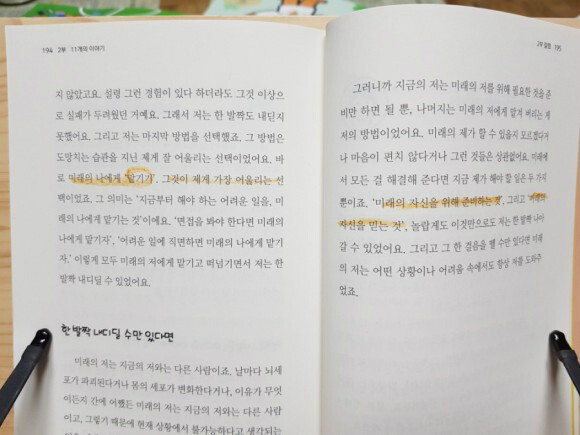 194 2부 11개의 이야기
지 않았고요. 설령 그런 경험이 있다 하더라도 그것 이상으
로 실패가 두려웠던 거예요. 그래서 저는 한 발짝도 내딛지
못했어요. 그리고 저는 마지막 방법을 선택했죠. 그 방법은
도망치는 습관을 지닌 제게 잘 어울리는 선택이었어요. 바
로 미래의 나에게 '맡기기'. 그것이 제게 가장 어울리는 선
택이었죠. 그 의미는 '지금부터 해야 하는 어려운 일을, 미
래의 나에게 맡기는 것'이에요. '면접을 봐야 한다면 미래의
나에게 맡기자', '어려운 일에 직면하면 미래의 나에게 맡기
자.' 이렇게 모두 미래의 저에게 맡기고 떠넘기면서 저는 한
발짝 내디딜 수 있었어요.
한 발짝 내디딜 수만 있다면
미래의 저는 지금의 저와는 다른 사람이죠. 날마다 뇌세
포가 파괴된다거나 몸의 세포가 변화한다거나, 이유가 무엇
이든지 간에 어쨌든 미래의 저는 지금의 저와는 다른 사람
이고, 그렇기 때문에 현재 상황에서 불가능하다고 생각되는
195
그러니까 지금의 저는 미래의 저를 위해 필요한 것을 준
비만 하면 될 뿐, 나머지는 미래의 저에게 맡겨 버리는 게
저의 방법이었어요. 미래의 제가 할 수 있을지 모르겠다거
나 마음이 편치 않다거나 그런 것들은 상관없어요. 미래에
서 모든 걸 해결해 준다면 지금 제가 해야 할 일은 두 가지
뿐이죠, '미래의 자신을 위해 준비하는 것', 그리고 '미래의
자신을 믿는 것', 놀랍게도 이것만으로도 저는 한 발짝 나아
갈 수 있었어요. 그리고 그 한 걸음을 뗄 수만 있다면 미래
의 저는 어떤 상황이나 어려움 속에서도 항상 저를 도와주
었죠.